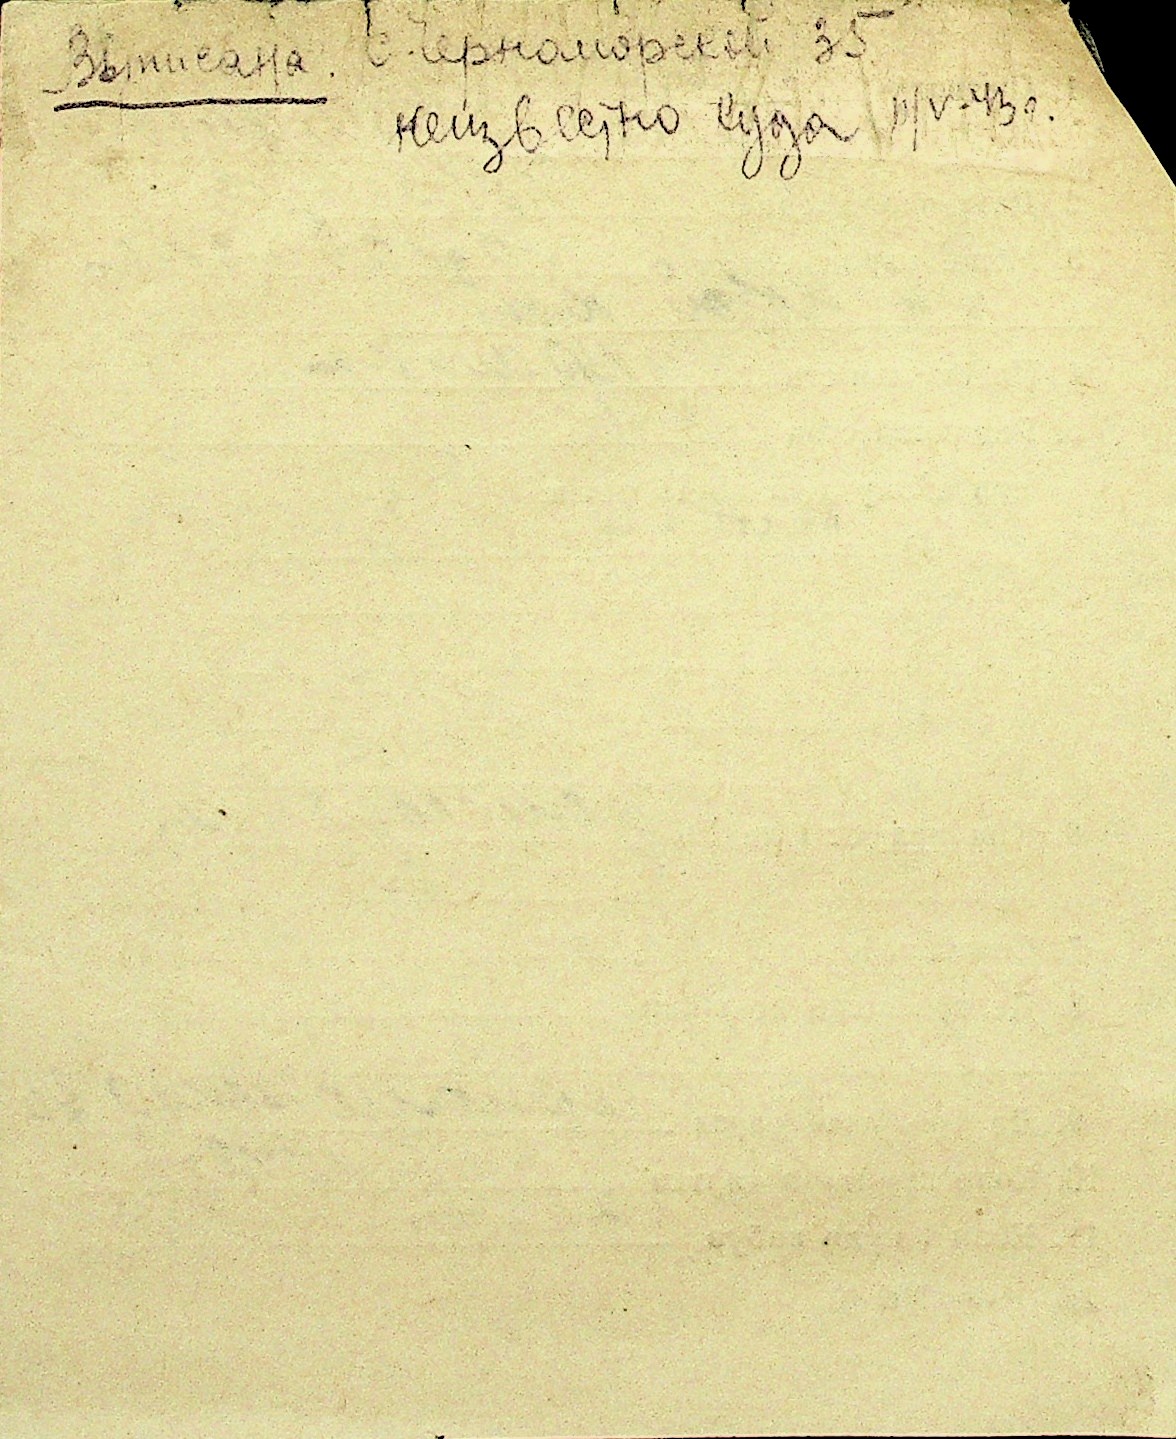 Выписана. с Черноморской 35
неизвестно куда /V-43 г.